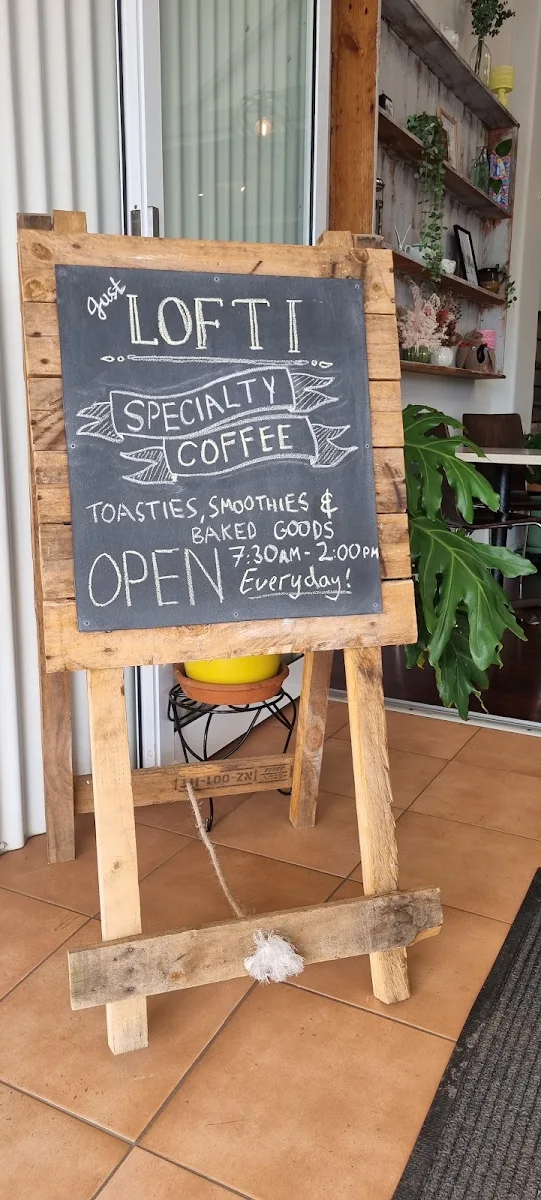 Just LOFTI
SPECIALTY
COFFEE
TOASTIES, SMOOTHIES &
BAKED GOODS
OPEN 7:30AM - 2:00PM
Everyday!